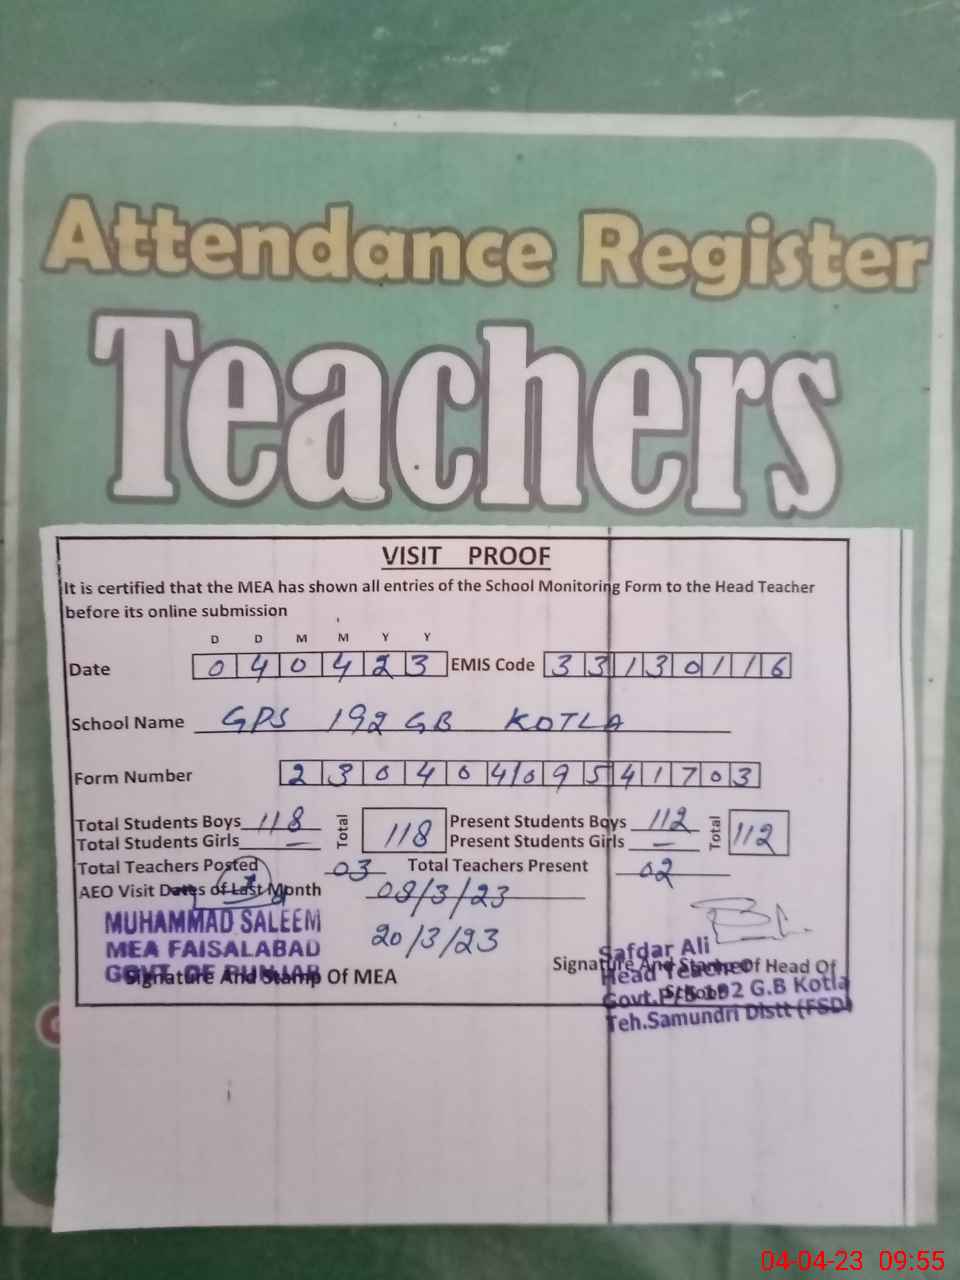 Attendance Register
Teachers
VISIT PROOF
It is certified that the MEA has shown all entries of the School Monitoring Form to the Head Teacher
before its online submission
D D M M Y Y
Date 0 4 0 4 2 3 EMIS Code 3 3 1 3 0 1 1 6
School Name GPS 192 GB KOTLA
Form Number 2 3 0 4 0 4 1 0 9 5 4 1 7 0 3
Total Students Boys 118 Total 118 Present Students Boys 112 Total 112
Total Students Girls — Present Students Girls —
Total Teachers Posted 03 Total Teachers Present 02
AEO Visit Dates of Last Month 08/3/23
20/3/23
MUHAMMAD SALEEM
MEA FAISALABAD
GOVT. OF PUNJAB
Signature And Stamp Of MEA
Safdar Ali
Signature And Stamp Of Head Of
School
Head Teacher
Govt.P/S 192 G.B Kotla
Teh.Samundri Distt (FSD)
04-04-23 09:55